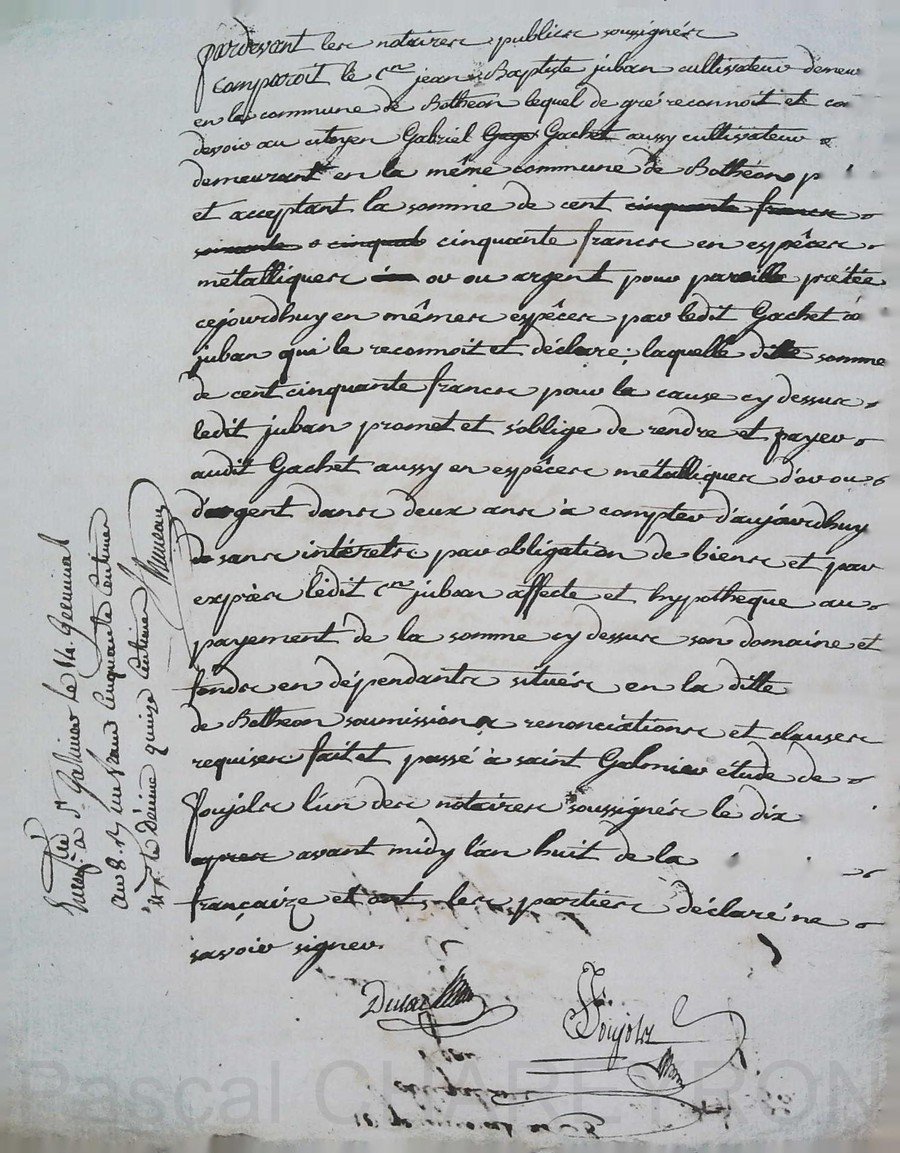 pardevant les notaires publics soussignés
comparoit le c.en jean Baptiste juban cultivateur demeu
en la commune de Bothéon lequel de gré reconnoit et co
devoir au citoyen Gabriel Gachet aussy cultivateur
demeurant en la même commune de Bothéon p
et acceptant la somme de cent cinquante francs
soixante cinquante francs en espêces
métalliques or ou argent pour pareille prétée
cejourdhuy en mêmes espêces par ledit Gachet à
juban qui le reconnoit et déclare; laquelle ditte somme
de cent cinquante francs pour la cause cy dessus
ledit juban promet et s'oblige de rendre et payer
audit Gachet aussy en espêces métalliques d'or ou
d'argent dans deux ans à compter d'aujourdhuy
sans intérets par obligation de biens et par
exprès ledit c.en juban affecte et hypotheque au
payement de la somme cy dessus son domaine et
fonds en dépendants situés en la ditte
de Bothéon soumissions renonciations et clauses
requises fait et passé à saint Galmier étude de
Poujols l'un des notaires soussignés le dix
avant midy l'an huit de la
françaize et ont les parties déclaré ne
savoir signer.
Poujols
Enreg.tré à S.t Galmier le 14 Germinal
an 8. un franc cinquante centimes
le Décime quinze centimes
Pascal CHAREYRON